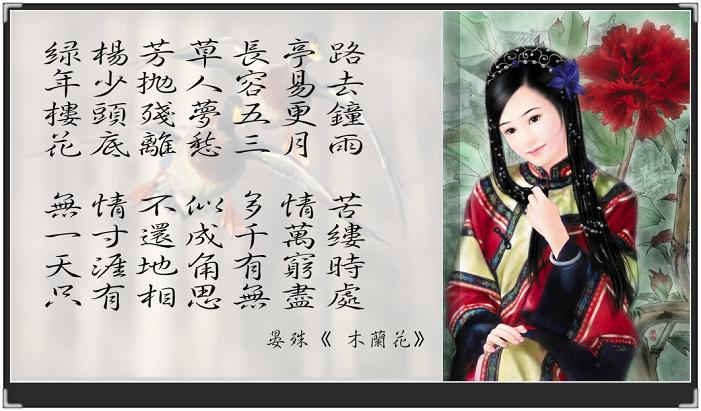 绿楊芳草長亭路
年少抛人容易去
樓頭殘夢五更鐘
花底離愁三月雨
無情不似多情苦
一寸還成千萬縷
天涯地角有窮時
只有相思無盡處
晏殊《 木蘭花》